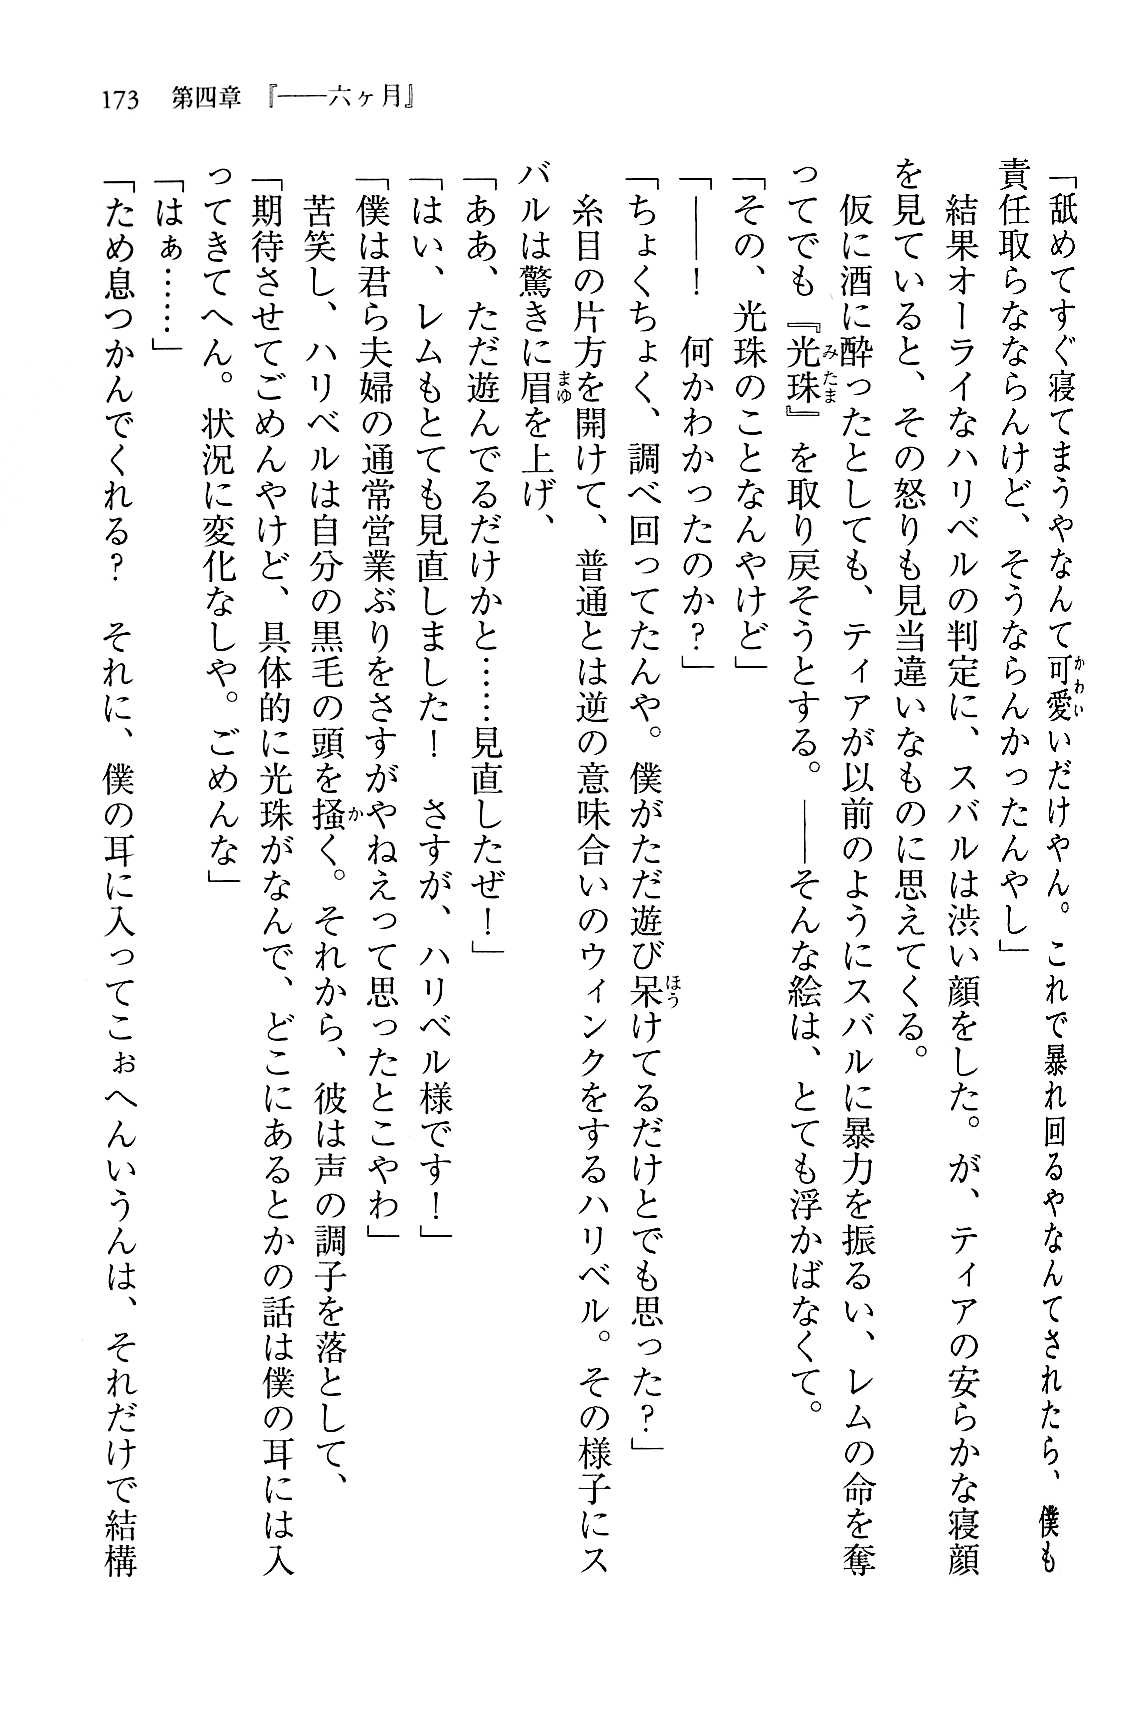 173　第四章　『――六ヶ月』
「舐めてすぐ寝てまうやなんて可愛いだけやん。これで暴れ回るやなんてされたら、僕も
責任取らなならんけど、そうならんかったんやし」
　結果オーライなハリベルの判定に、スバルは渋い顔をした。が、ティアの安らかな寝顔
を見ていると、その怒りも見当違いなものに思えてくる。
　仮に酒に酔ったとしても、ティアが以前のようにスバルに暴力を振るい、レムの命を奪
ってでも『光珠』を取り戻そうとする。――そんな絵は、とても浮かばなくて。
「その、光珠のことなんやけど」
「――！　何かわかったのか？」
「ちょくちょく、調べ回ってたんや。僕がただ遊び呆けてるだけとでも思った？」
　糸目の片方を開けて、普通とは逆の意味合いのウィンクをするハリベル。その様子にス
バルは驚きに眉を上げ、
「ああ、ただ遊んでるだけかと……見直したぜ！」
「はい、レムもとても見直しました！　さすが、ハリベル様です！」
「僕は君ら夫婦の通常営業ぶりをさすがやねえって思ったとこやわ」
　苦笑し、ハリベルは自分の黒毛の頭を掻く。それから、彼は声の調子を落として、
「期待させてごめんやけど、具体的に光珠がなんで、どこにあるとかの話は僕の耳には入
ってきてへん。状況に変化なしや。ごめんな」
「はぁ……」
「ため息つかんでくれる？　それに、僕の耳に入ってこぉへんいうんは、それだけで結構